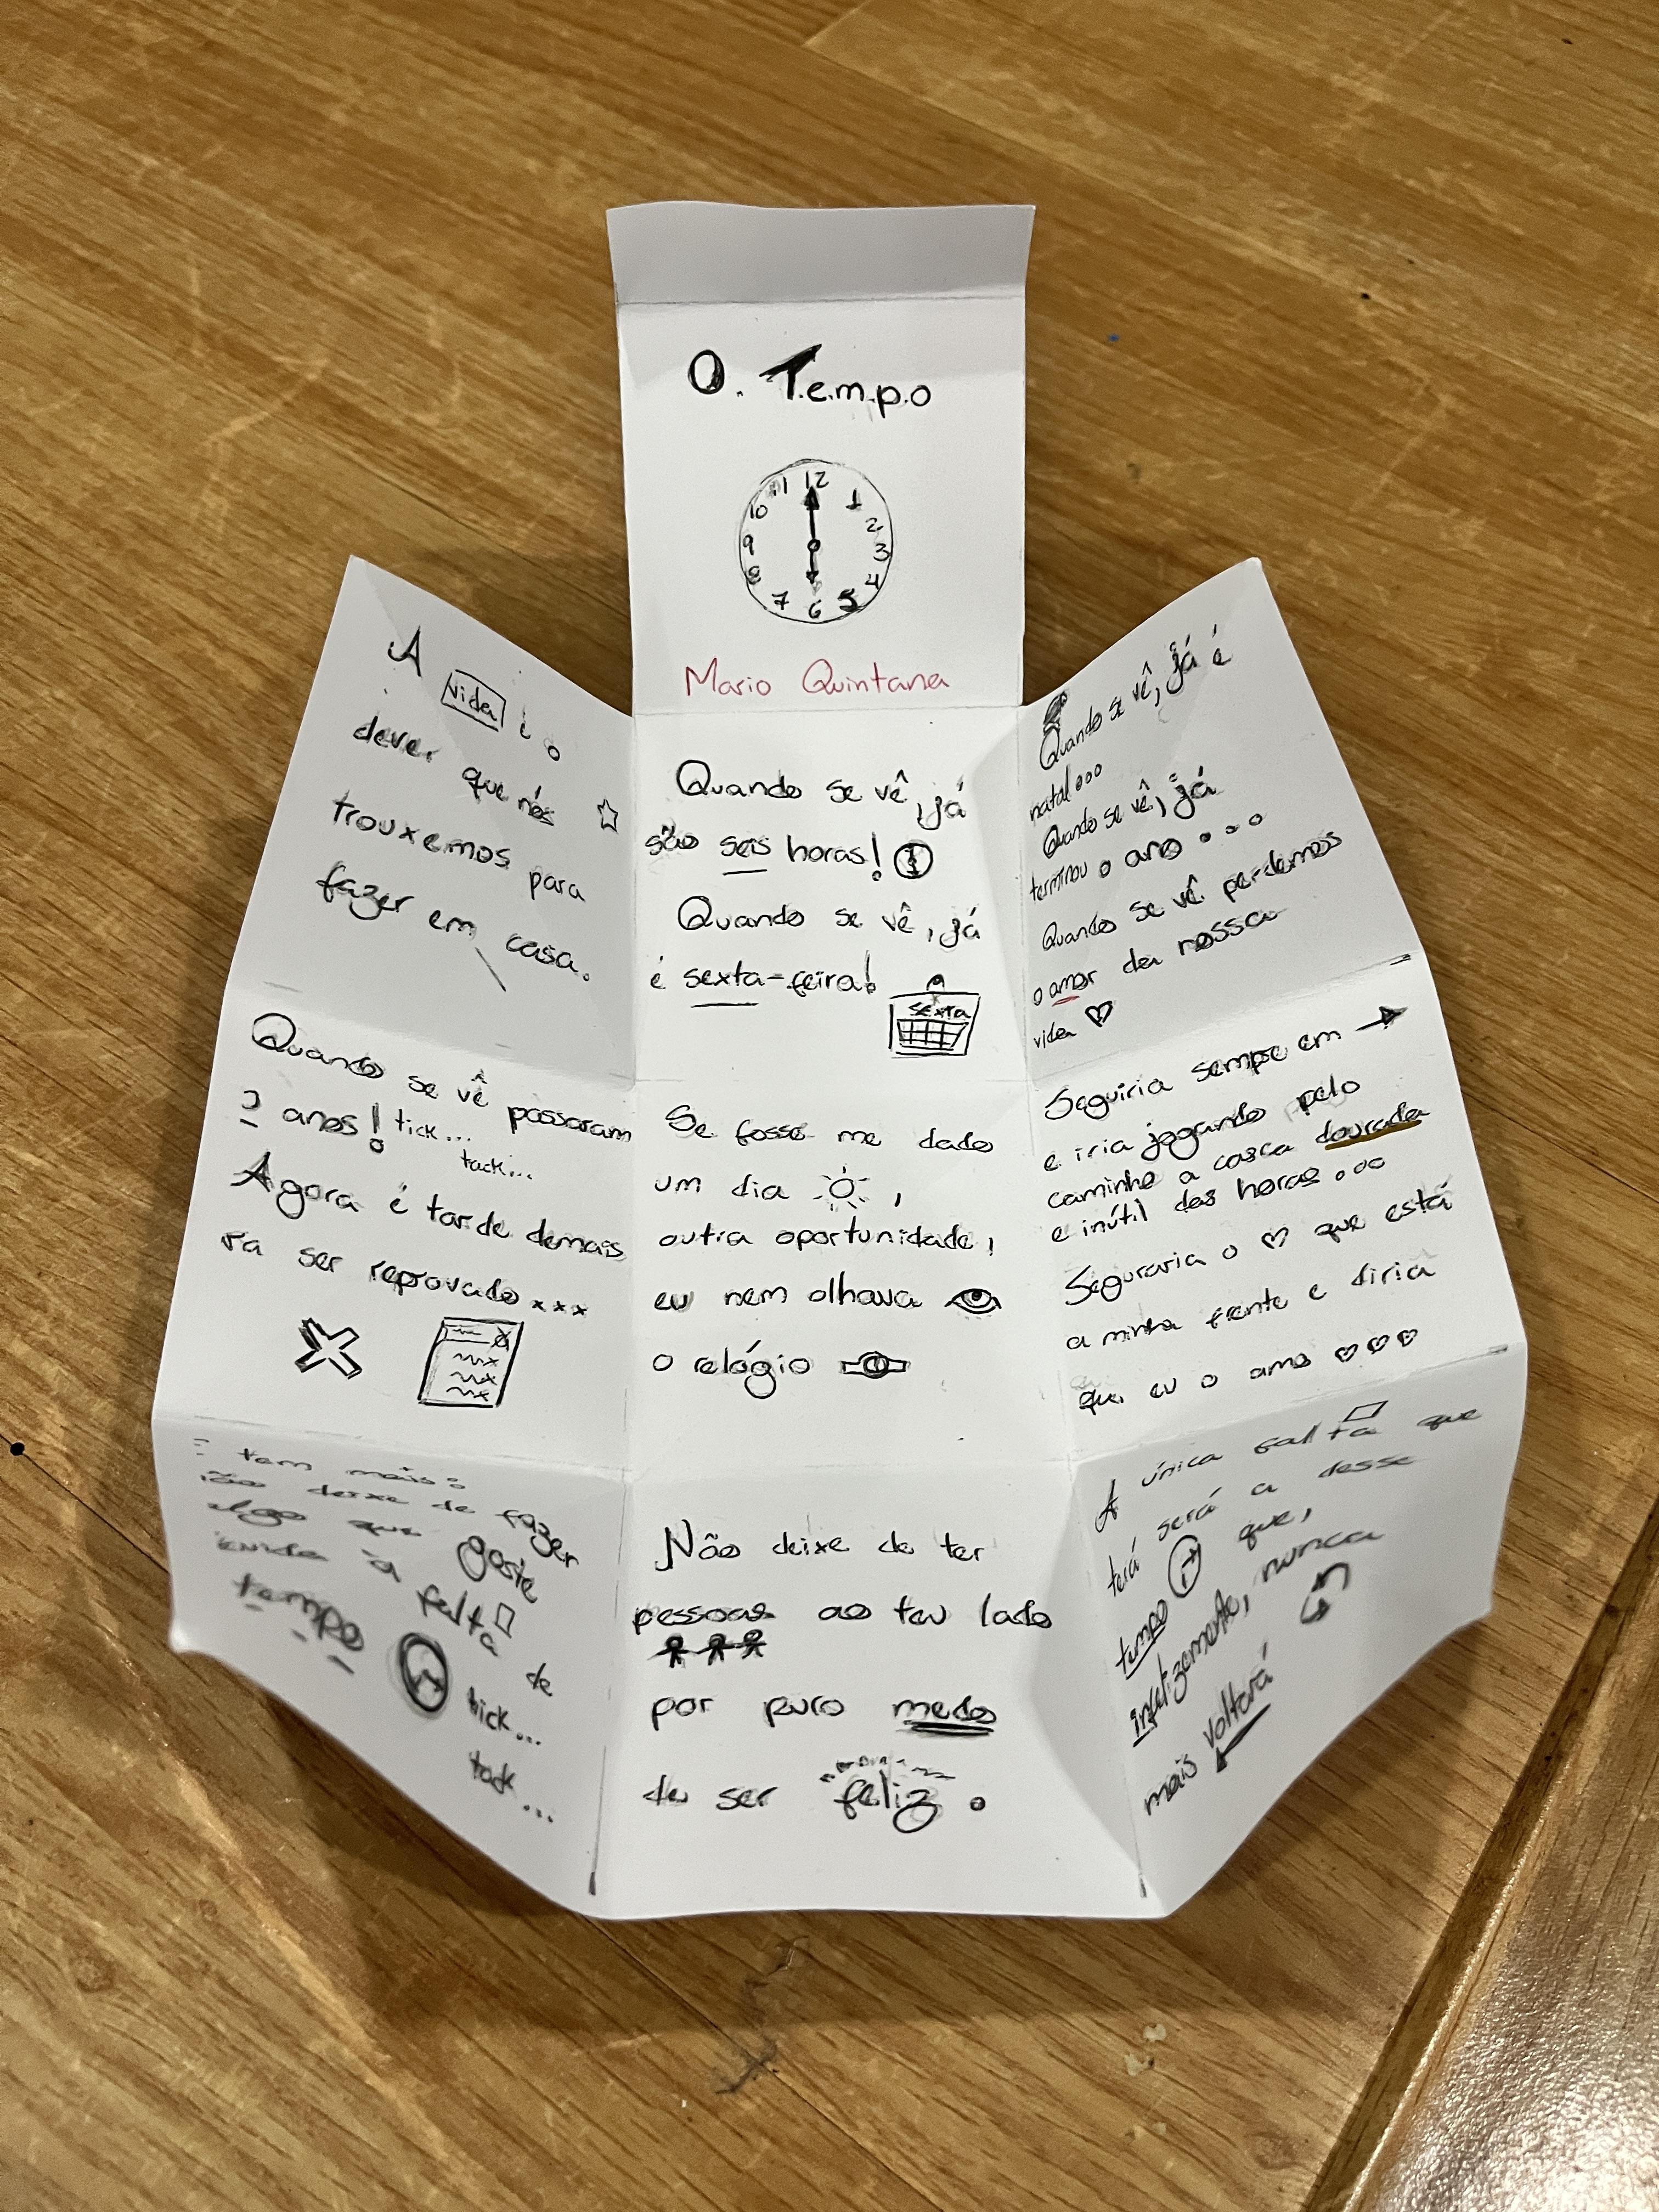 O. T.e.m.p.o
11 12 1
10 2
9 3
8 4
7 6 5
Mario Quintana
A vida é o
dever que nós
trouxemos para
fazer em casa.
Quando se vê, já
são seis horas!
Quando se vê, já
é sexta-feira!
sexta
Quando se vê, já é
natal...
Quando se vê, já
terminou o ano...
Quando se vê perdemos
o amor da nossa
vida
Quando se vê passaram
anos! tick...
tack...
Agora é tarde demais
ra ser reprovado...
Se fosse me dado
um dia,
outra oportunidade,
eu nem olhava
o relógio
Seguiria sempre em
e iria jogando pelo
caminho a casca dourada
e inútil das horas...
Seguraria o que está
a minha frente e diria
que eu o amo
E tem mais:
não deixe de fazer
algo que goste
à falta de
tempo
tick...
tack...
Não deixe de ter
pessoas ao teu lado
por puro medo
de ser feliz.
A única falta que
terá será a desse
tempo que,
infelizmente, nunca
mais voltará